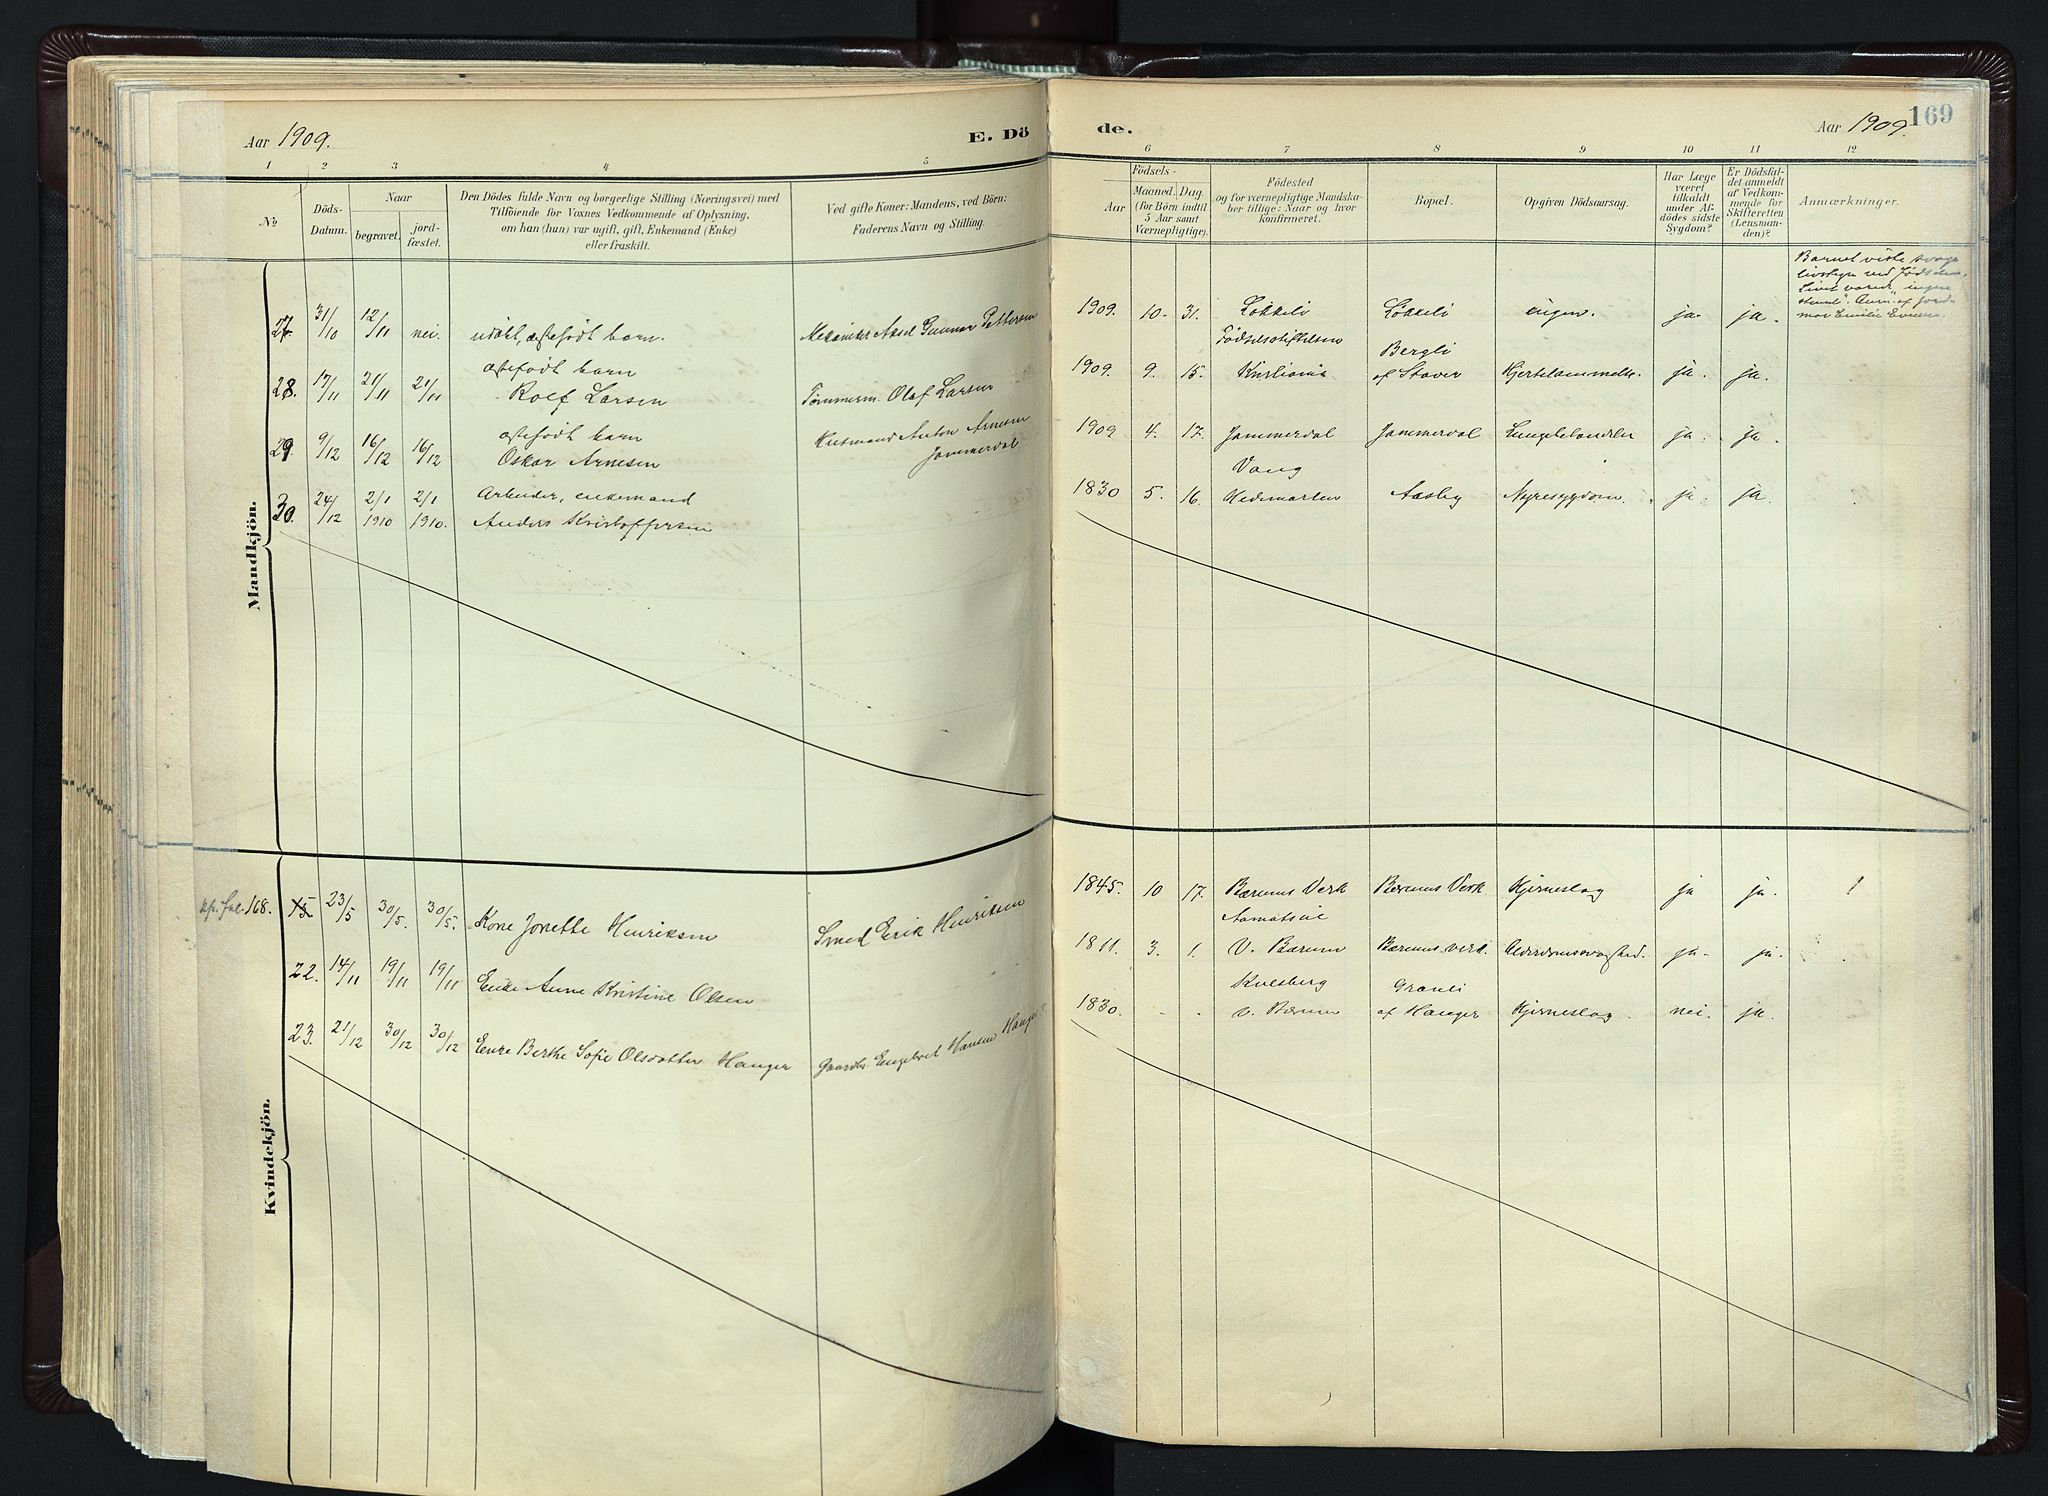 Aar 1909.
E. Dö
de.
Aar 1909.
169
1 2 3 4 5 6 7 8 9 10 11 12
No
Döds-
Datum.
Naar
begravet.
jord-
fæstet.
Den Dödes fulde Navn og borgerlige Stilling (Næringsvei) med
Tilföiende for Voxnes Vedkommende af Oplysning,
om han (hun) var ugift, gift, Enkemand (Enke)
eller fraskilt.
Ved gifte Koner: Mandens, ved Börn:
Faderens Navn og Stilling.
Födsels-
Aar
Maaned.
Dag.
(for Börn indtil
5 Aar samt
Værnepligtige).
Födested
og for værnepligtige Mandska-
ber tillige: Naar og hvor
konfirmeret.
Bopæl.
Opgiven Dödsaarsag.
Har Læge
været
tilkaldt
under Af-
dödes sidste
Sygdom?
Er Dödsfal-
det anmeldt
af Vedkom-
mende for
Skifteretten
(Lensman-
den)?
Anmærkninger.
Mandkjön.
27. 31/10 12/11 nei. udöbt, ægtefødt barn. Mekaniker Aksel Gunnar Pettersen 1909. 10. 31. Løkkeli Løkkeli ingen. ja. ja.
Barnet viste svage
livstegn ved Fødselen.
Livet varede "ingen
stund". Anm. af Jord-
mor Emilie
28. 17/11 21/11 21/11 ægtefødt barn
Rolf Larsen
Tømmerm. Olaf Larsen 1909. 9. 15. Fødselsstiftelsen
Kristiania
Bergli
af Staver
Hjertelammelse. ja. ja.
29. 9/12 16/12 16/12 ægtefødt barn
Oskar Arnesen
Husmand Anton Arnesen
Jammerdal
1909 4. 17. Jammerdal Jammerdal Lungebetændelse ja ja.
30. 24/12 2/1 1910 2/1 1910. Arbeider, enkemand
Anders Kristoffersen
1830 5. 16. Vang
Hedemarken
Aasby Nyresygdom. ja. ja.
Kvindekjön.
kfr. fol. 168. 15. 23/5 30/5. 30/5. Kone Jonette Henriksen Smed Erik Henriksen 1845. 10 17. Bærums Verk Bærums Verk Hjerneslag ja ja.
22. 14/11 19/11 19/11 Enke Anne Kristine Olsen 1811. 3. 1.
V. Bærum Bærums verk. Alderdomssvaghed. ja. ja.
23. 21/12 30/12 30/12 Enke Berthe Sofie Olsdatter Hauger Gaardbr. Engebret Hansen Hauger 1830. . .
V. Bærum
Granli
af Hauger
Hjerneslag. nei. ja.